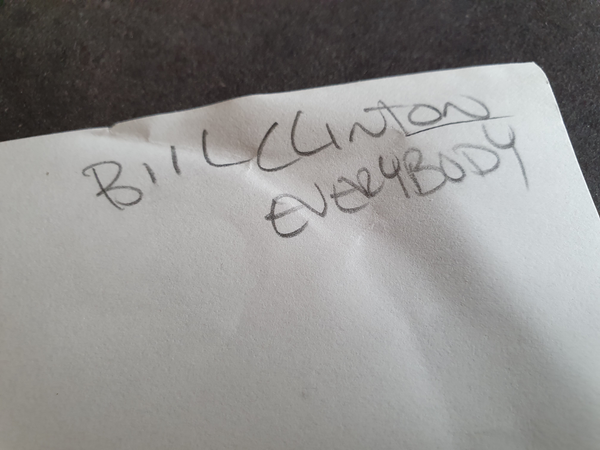 BIILCLINTON
EVERYBODY